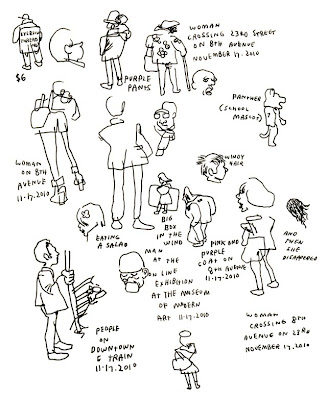 $6
PURPLE
PANTS
WOMAN
CROSSING 23RD STREET
ON 8TH AVENUE
NOVEMBER 17, 2010
PANTHER
(SCHOOL
MASCOT)
WINDY
HAIR
WOMAN
ON 8TH
AVENUE
11-17-2010
EATING
A SALAD
BIG
BOX
IN THE
WIND
MAN
AT THE
ON LINE
EXHIBITION
AT THE MUSEUM
OF MODERN
ART 11-17-2010
PINK AND
PURPLE
COAT ON
8TH AVENUE
11-17-2010
AND
THEN SHE
DISAPPEARED
PEOPLE
ON
DOWNTOWN
E TRAIN
11-17-2010
WOMAN
CROSSING 8TH
AVENUE ON 23RD
NOVEMBER 17, 2010